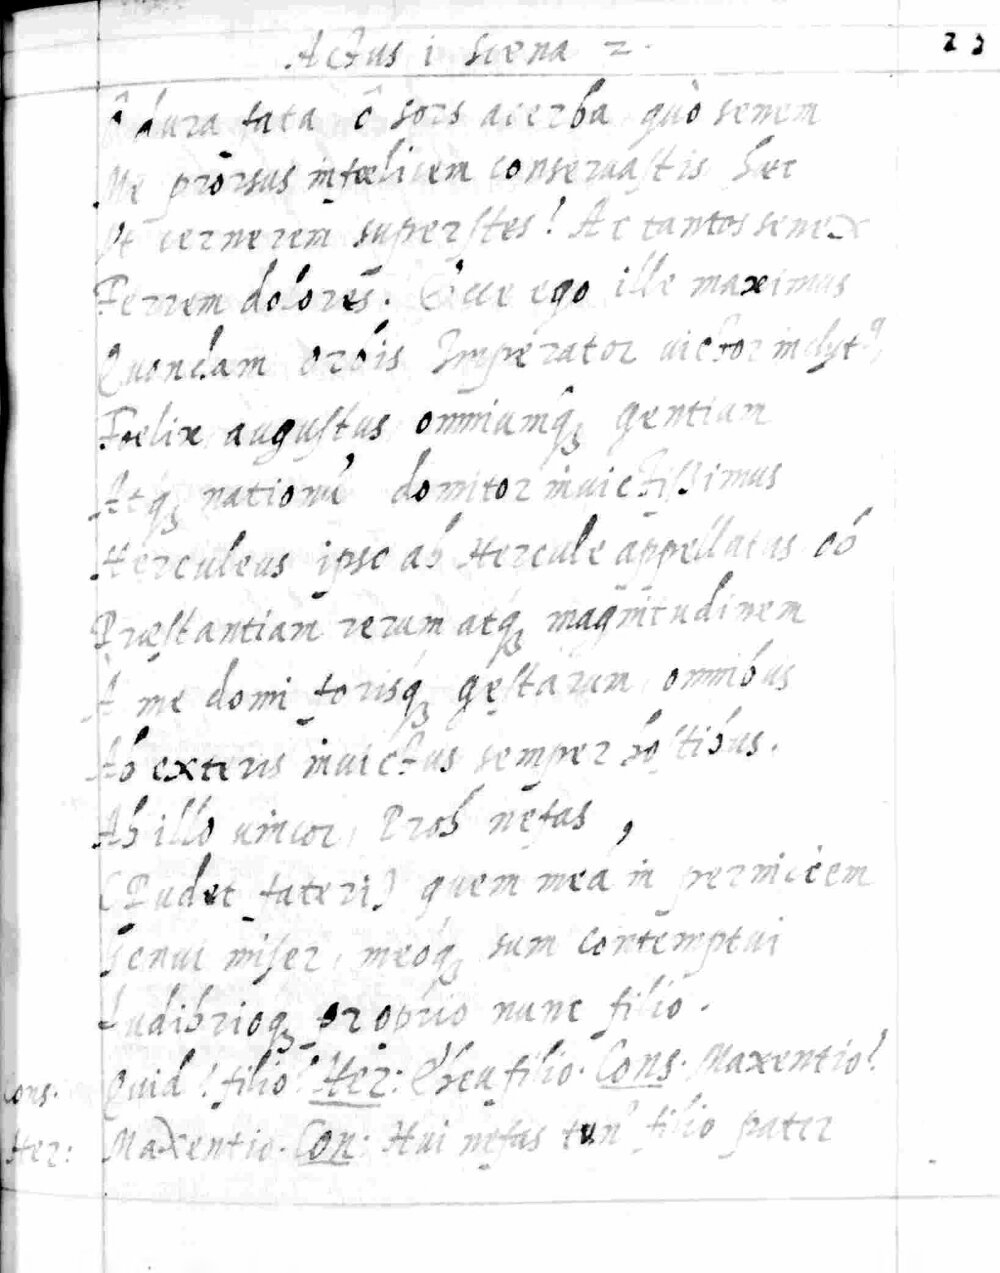 Actus i Scena 2. 23
ô dura fata ô sors acerba quò senem
Me prorsus infœlicem conseruastis hæc
Vt cernerem superstes! Ac tantos senex
Ferrem dolores. Ecce ego ille maximus
Quondam orbis Imperator uictor inclytꝰ,
Fœlix augustus omniumqꝫ gentium
Atqꝫ nationū domitor inuictissimus
Herculeus ipse ab Hercule appellatus ob
Præstantiam rerum atqꝫ magnitudinem
A me domi forisqꝫ gestarum omnibus
Ab exteris inuictus semper hostibus.
Ab illo uincor, Proh nefas,
(Pudet fateri) quem meā in perniciem
Genui miser, meoqꝫ sum contemptui
Ludibrioqꝫ proprio nunc filio.
Cons. Quid? filio? Her: Eheu filio. Cons. Maxentio?
Her: Maxentio. Con: Hui nefas tun' filio pater